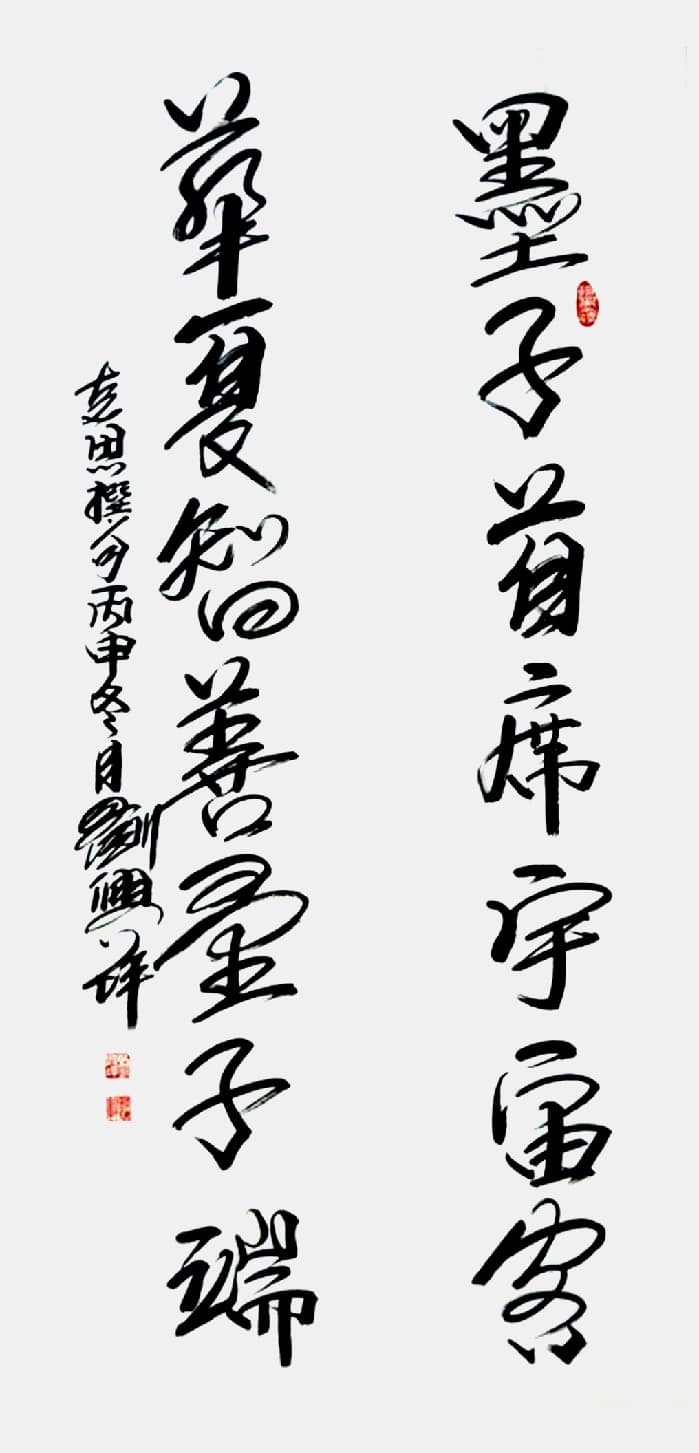 墨子首席宇宙客
華夏智善量子端
志思撰句丙申冬月劉興祥